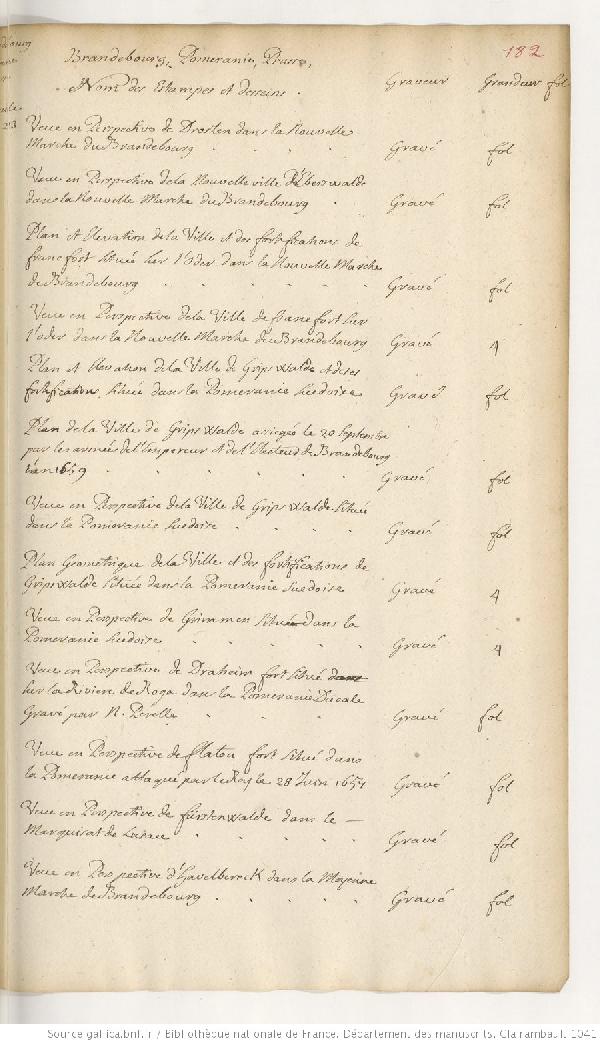 182
Brandebourg, Pomeranie, Prusse,
Nom des Estampes et desseins. Graveur Grandeur fol
Veue en Perspective de Drossen dans la Nouvelle
Marche du Brandebourg Gravé fol
Veue en Perspective de la Nouvelle ville D'Eberswalde
dans la Nouvelle Marche du Brandebourg Gravé fol
Plan et Elevation de la Ville et des fortifications de
francfort située sur l'Oder dans la Nouvelle Marche
de Brandebourg Gravé fol
Veue en Perspective de la Ville de francfort sur
l'oder dans la Nouvelle Marche du Brandebourg Gravé 4
Plan et Elevation de la Ville de Gripswalde et de ses
fortifications, située dans la Pomeranie Suedoise Gravé fol
Plan de la Ville de Gripswalde assiegée le 20 Septembre
par les armées de l'Empereur et de l'Electeur de Brandebourg
en 1659 Gravé fol
Veue en Perspective de la Ville de Gripswalde située
dans la Pomeranie Suedoise Gravé fol
Plan Geometrique de la Ville et des fortifications de
Gripswalde située dans la Pomeranie Suedoise Gravé 4
Veue en Perspective de Grimmen située dans la
Pomeranie Suedoise Gravé 4
Veue en Perspective de Draheim fort situé dans
sur la Riviere de Rega dans la Pomeranie Ducale
Gravé par N. Perelle Gravé fol
Veue en Perspective de flatou fort situé dans
la Pomeranie attaqué par le Roy le 28 Juin 1657 Gravé fol
Veue en Perspective de furstenwalde dans le
Marquisat de Gravé fol
Veue en Perspective d'Havelbereck dans la Moyenne
Marche de Brandebourg Gravé fol
Source gallica.bnf.fr / Bibliothèque nationale de France. Département des manuscrits. Clairambault 1041